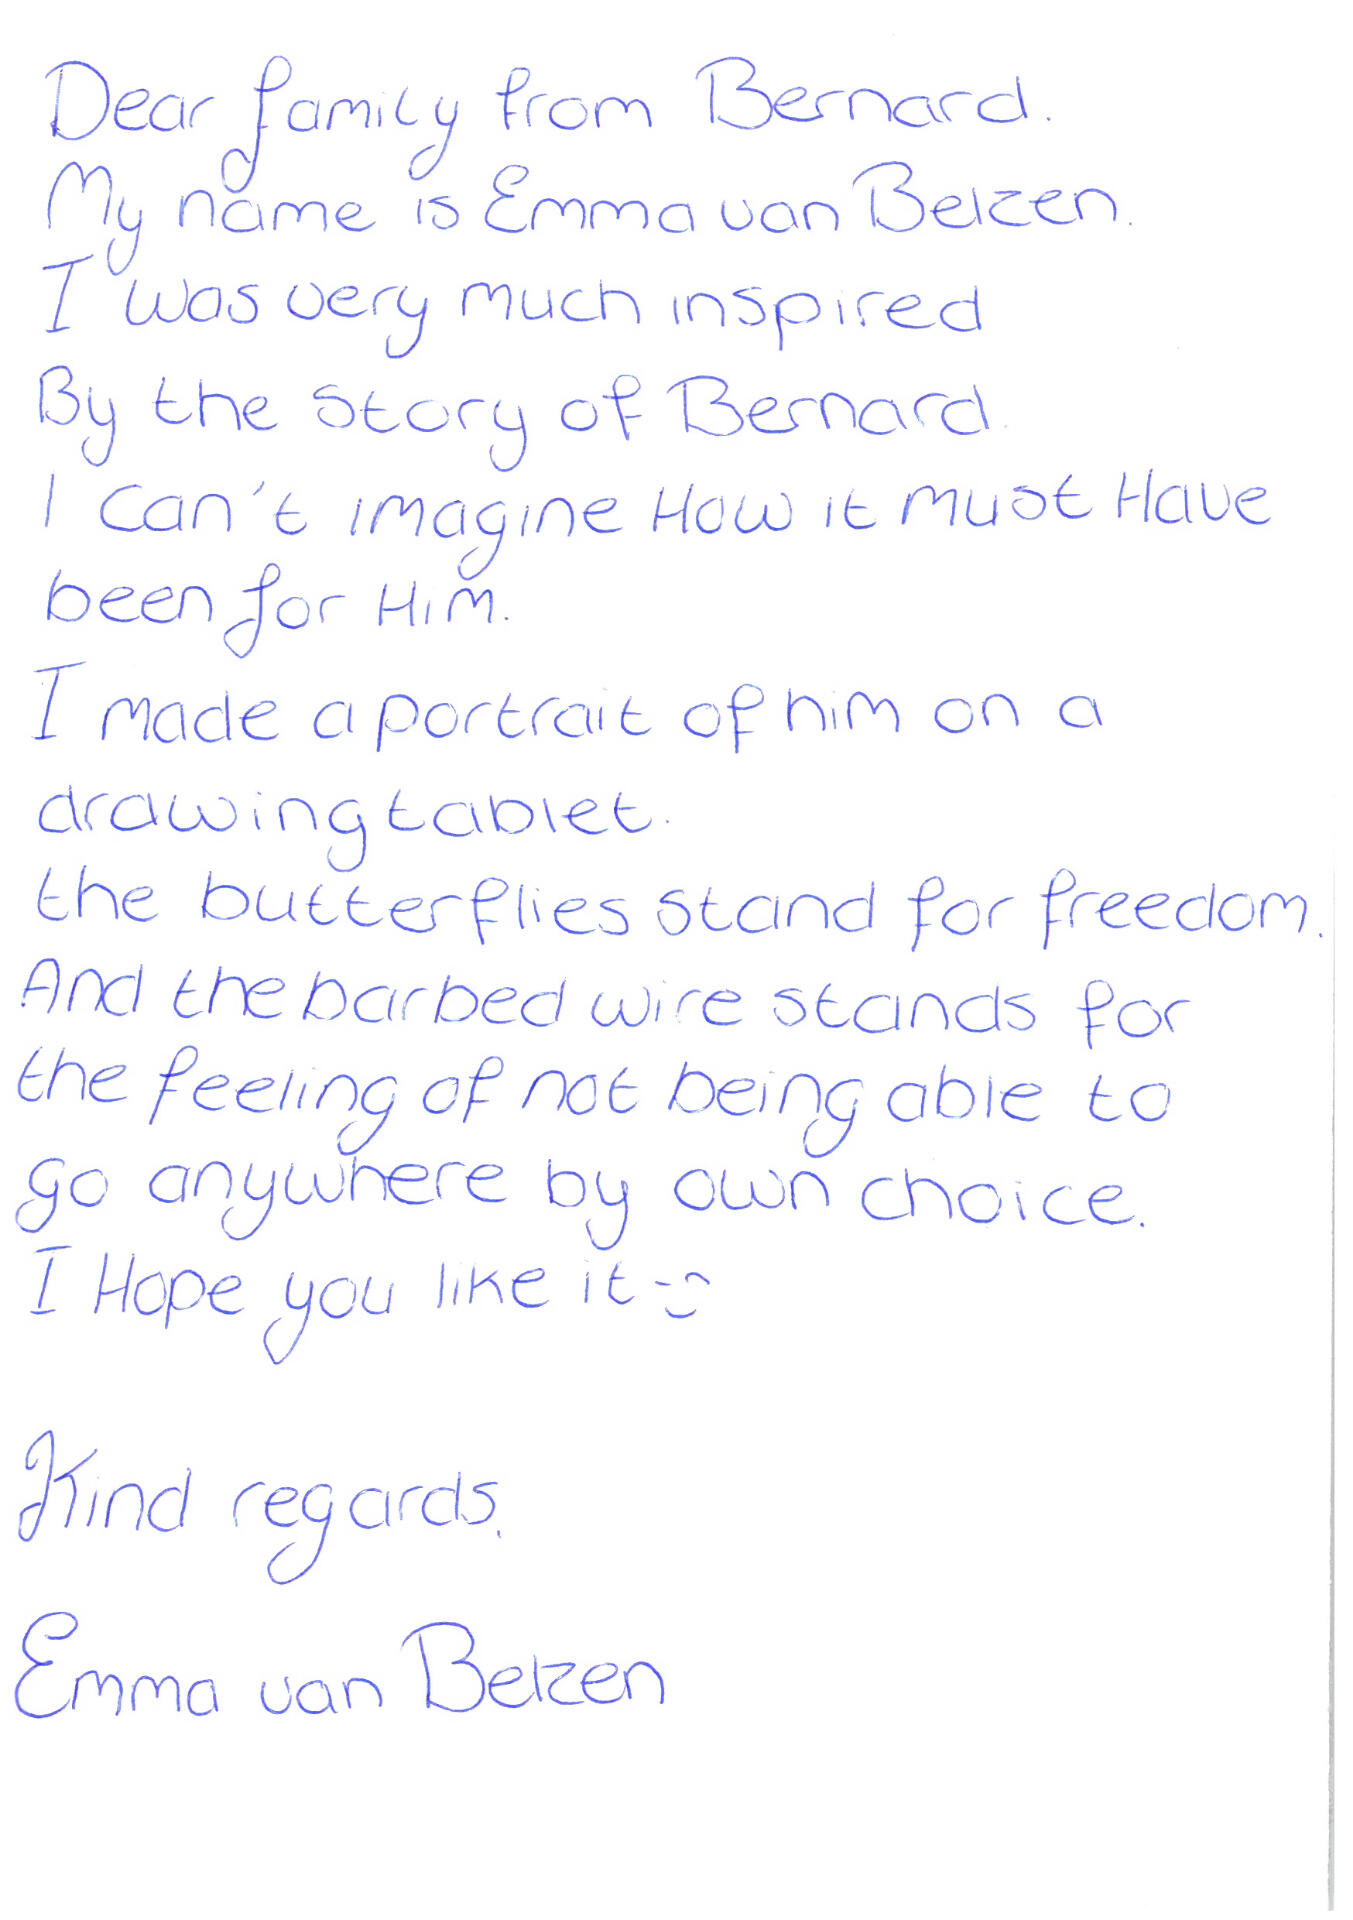 Dear family from Bernard.
My name is Emma van Belzen.
I was very much inspired
By the story of Bernard.
I can't imagine How it must Have
been for Him.
I made a portrait of him on a
drawing tablet.
the butterflies stand for freedom.
And the barbed wire stands for
the feeling of not being able to
go anywhere by own choice.
I Hope you like it
Kind regards,
Emma van Belzen